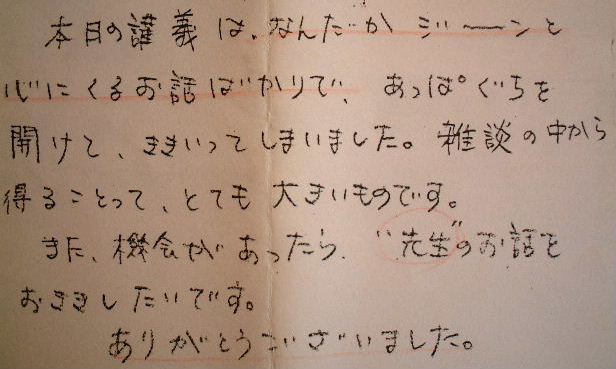 本日の講義は、なんだか ジーンと
心にくるお話ばかりで、あっぱぐちを
開けて、ききいってしまいました。雑談の中から
得ることって、とても大きいものです。
また、機会があったら、“先生”のお話を
おききしたいです。
ありがとうございました。